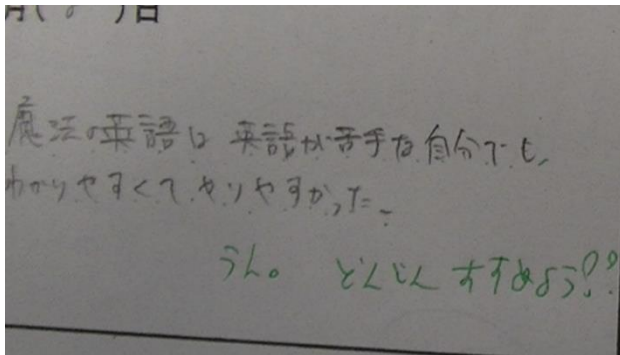 月( 8 )日
魔法の英語は 英語が苦手な自分でも、
わかりやすくて、やりやすかった。
うん。 どんどんすすめよう!!